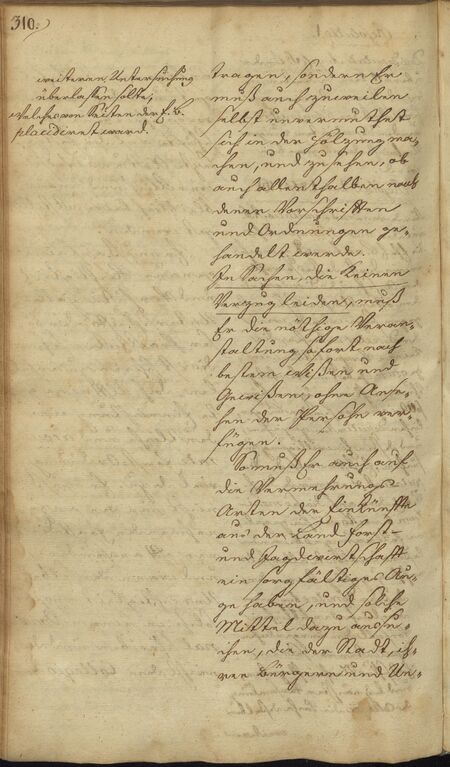 310.
weiteren Untersuchung
überlassen solte,
Welches von Seiten der E. B.
placidiret ward.
tragen, sondern Er
muß auch zuweilen
selbst unvermuthet
sich in der Holzung ma-
chen, und zusehen, ob
auch allenthalben nach
denen Vorschrifften
und Ordnungen ge-
handelt werde.
In Sachen, die keinen
Verzug leiden, muß
Er die nöthige Veran-
staltung sofort nach
bestem Wißen und
Gewißen, ohne Anse-
hen der Persohn ver-
fügen.
So muß Er auch auf
die Vermehrungs
Arten der Einkünffte
aus der Land Forst-
und Jagdwirtschafft
ein sorgfältiges Au-
ge haben, und solche
Mittel dazu aussu-
chen, die der Stadt, ih-
ren Bürgern und Un-